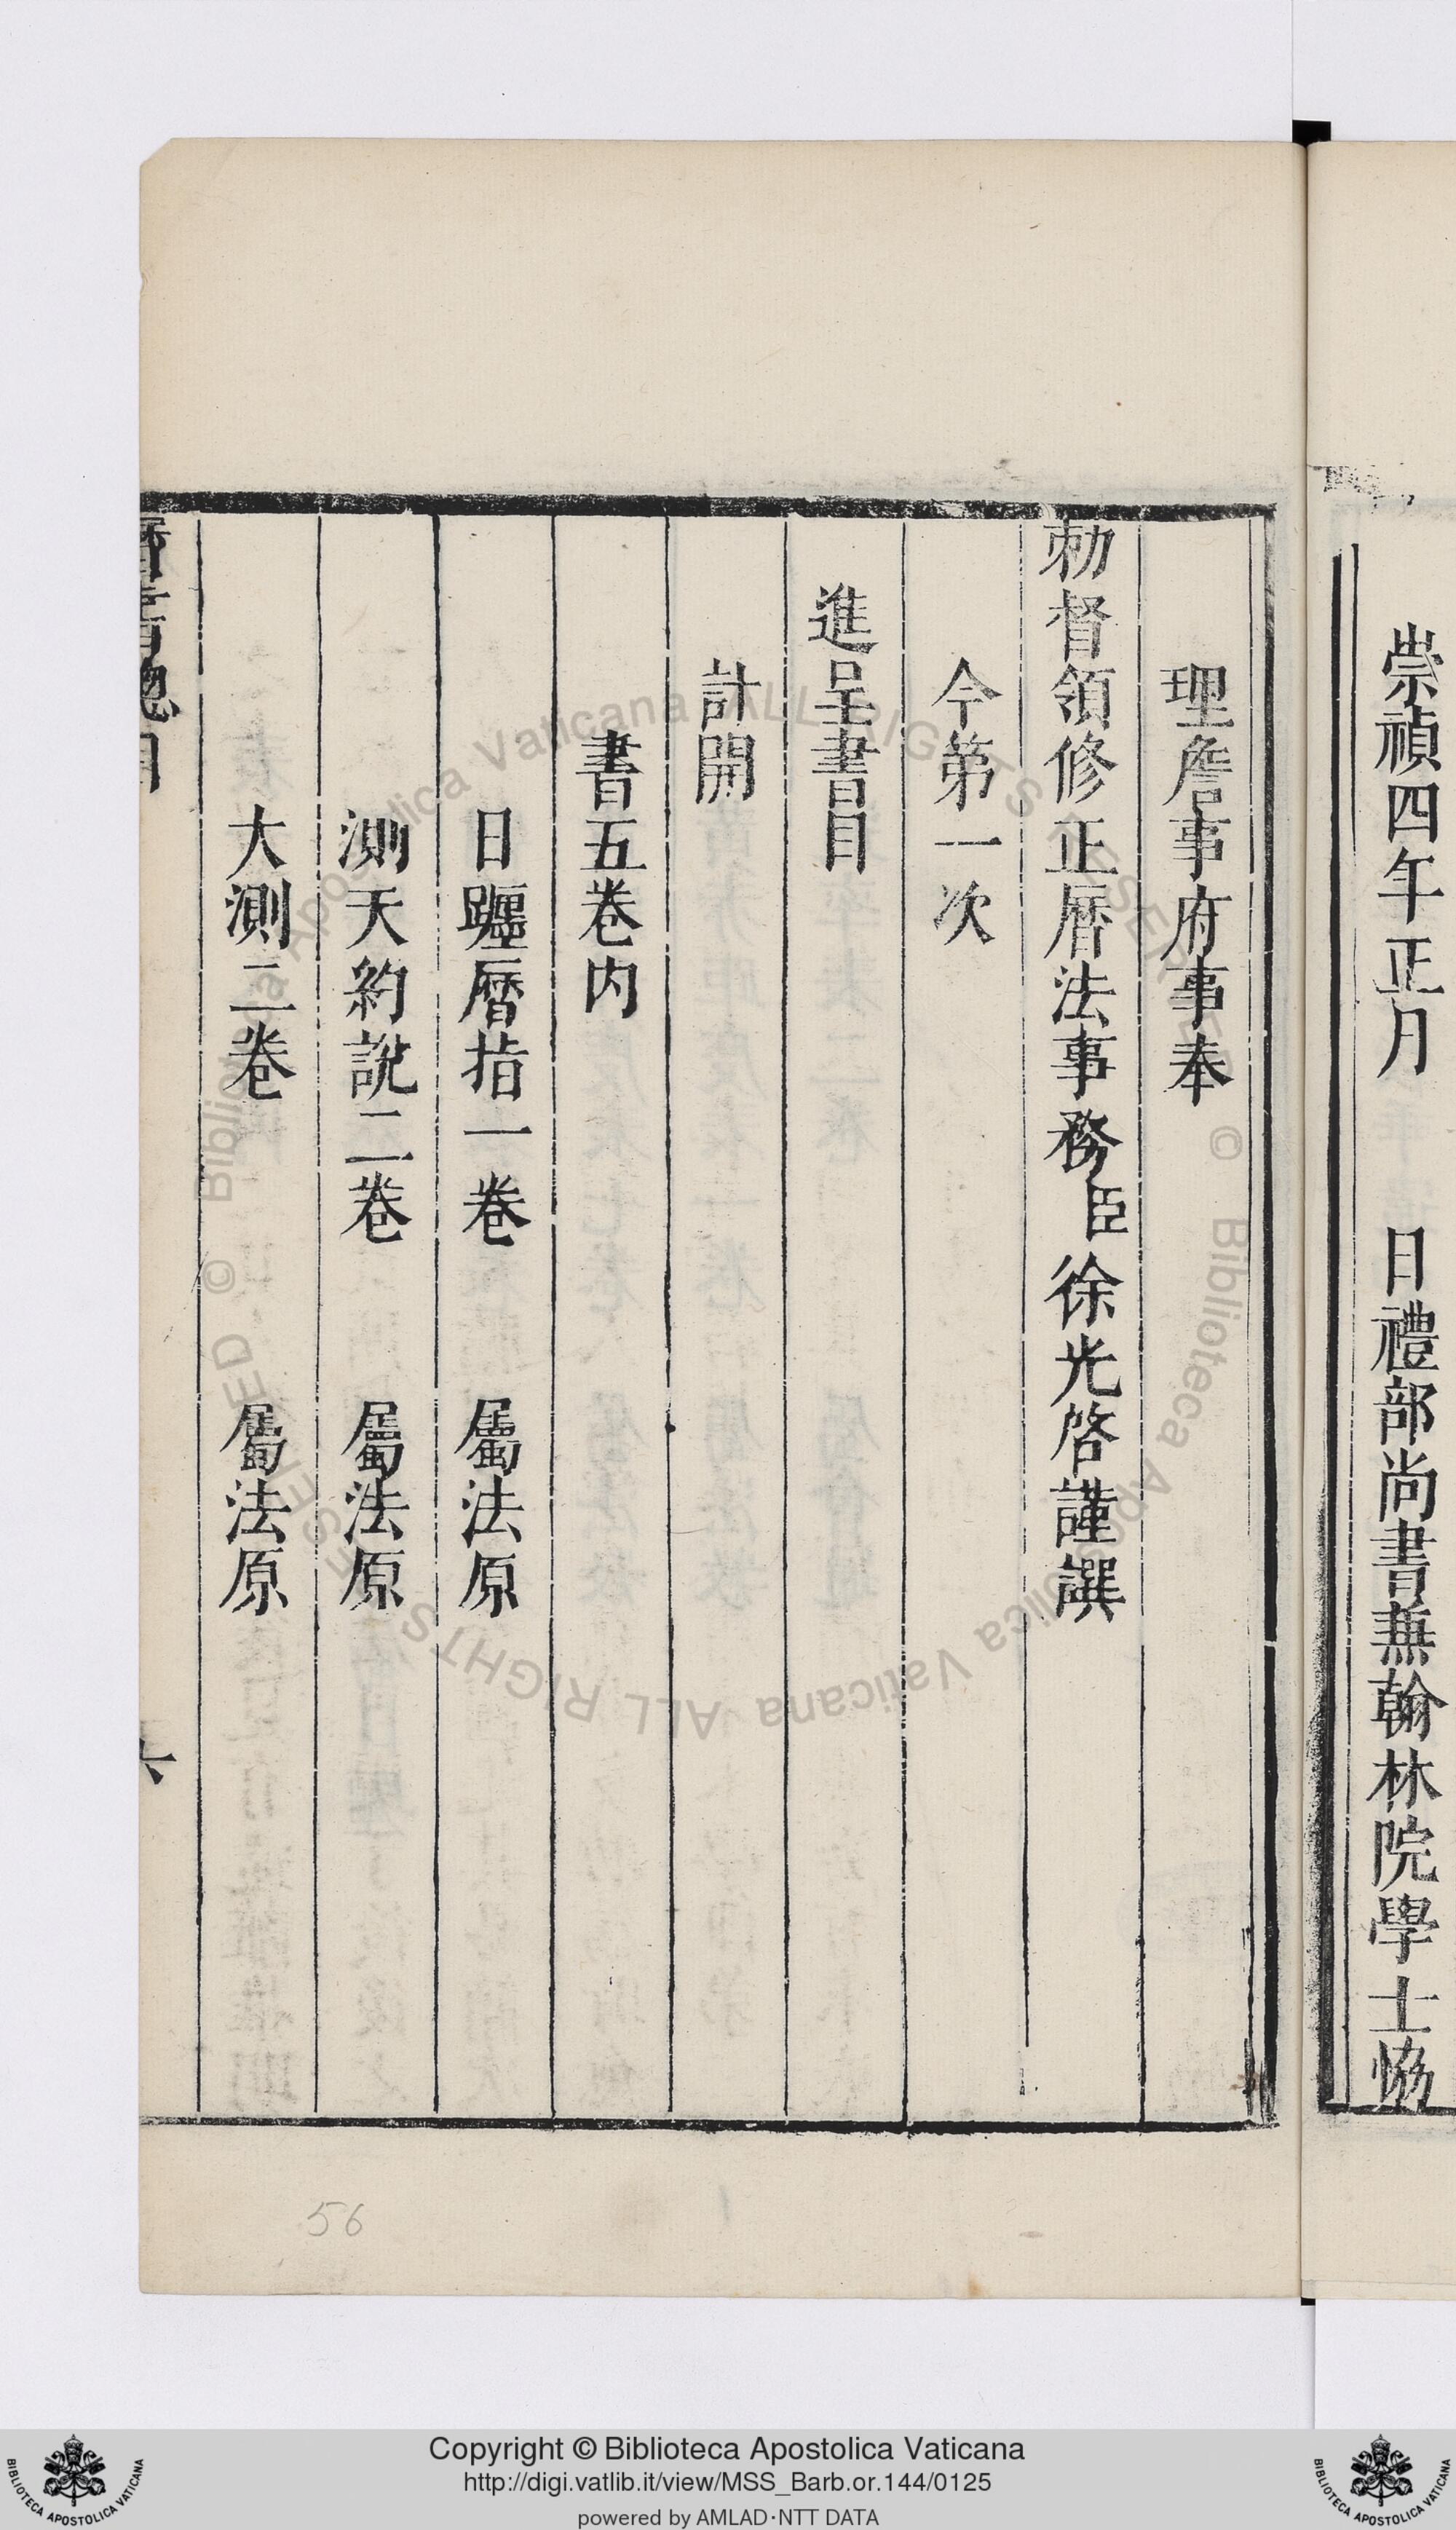 崇禎四年正月　日禮部尚書兼翰林院學士恊
理詹事府事奉
勅督領修正曆法事務臣徐光啓謹譔
今第一次
進呈書目
計開
書五卷内
日躔曆指一卷　屬法原
測天約說二卷　屬法原
大測二卷　屬法原
曆書總目
六
56
© Biblioteca Apostolica Vaticana ALL RIGHTS RESERVED © Biblioteca Apostolica Vaticana ALL RIGHTS RESERVED
Copyright © Biblioteca Apostolica Vaticana
http://digi.vatlib.it/view/MSS_Barb.or.144/0125
powered by AMLAD·NTT DATA
BIBLIOTECA APOSTOLICA VATICANA
BIBLIOTECA APOSTOLICA VATICANA